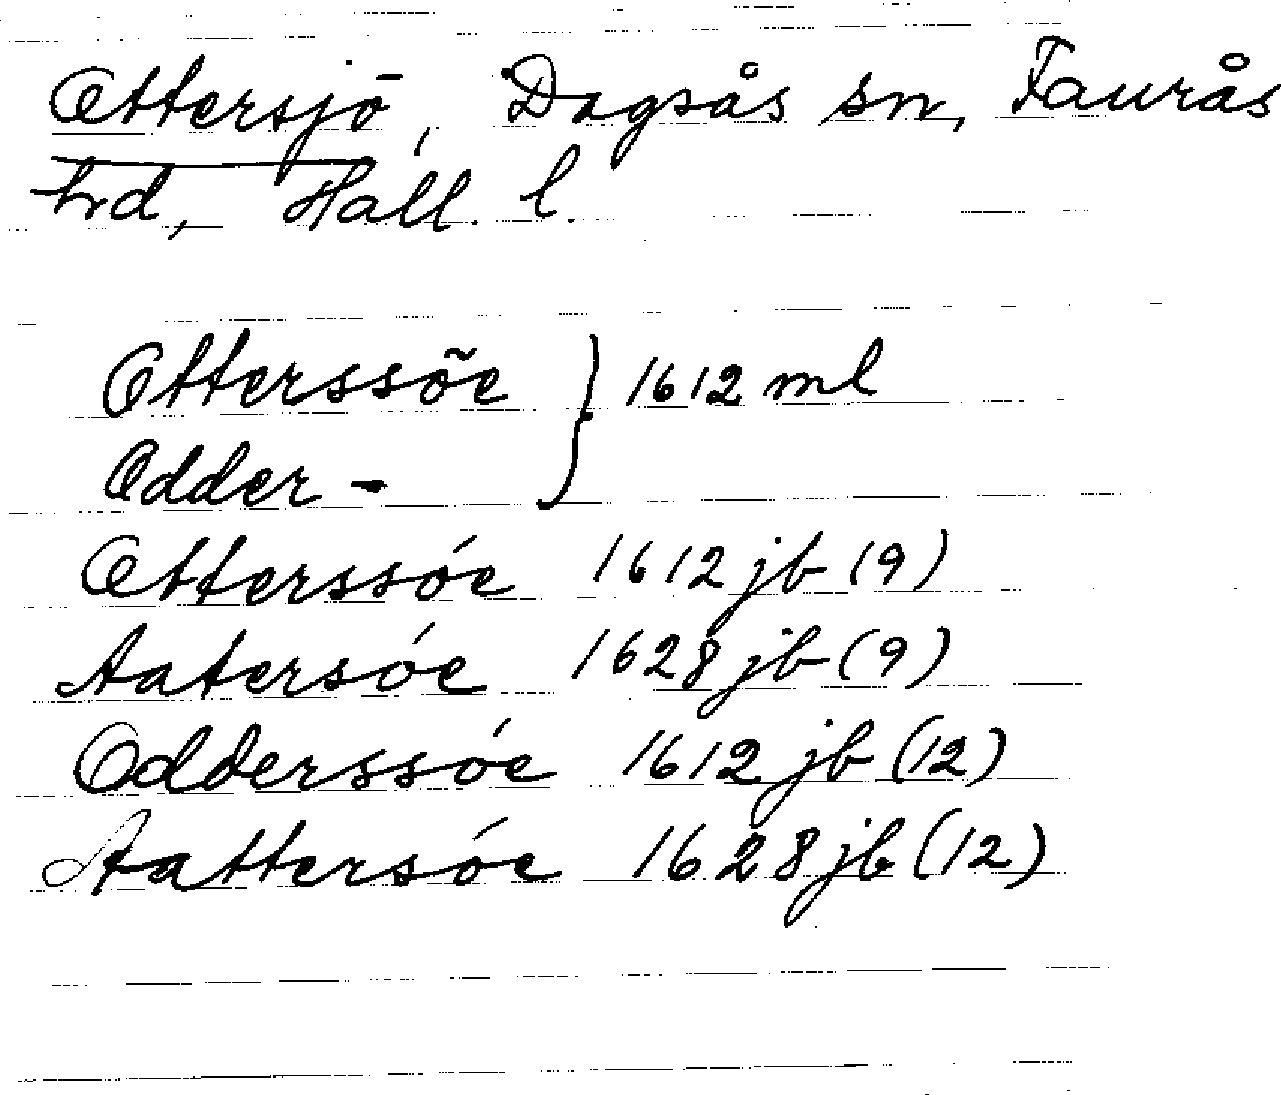 Ottersjö, Dagsås sn, Faurås
hrd, Hall. l.
Otterssõe } 1612 ml
Odder -
Otterssóe 1612 jb (9)
Aatersóe 1628 jb (9)
Odderssóe 1612 jb (12)
Aattersóe 1628 jb (12)